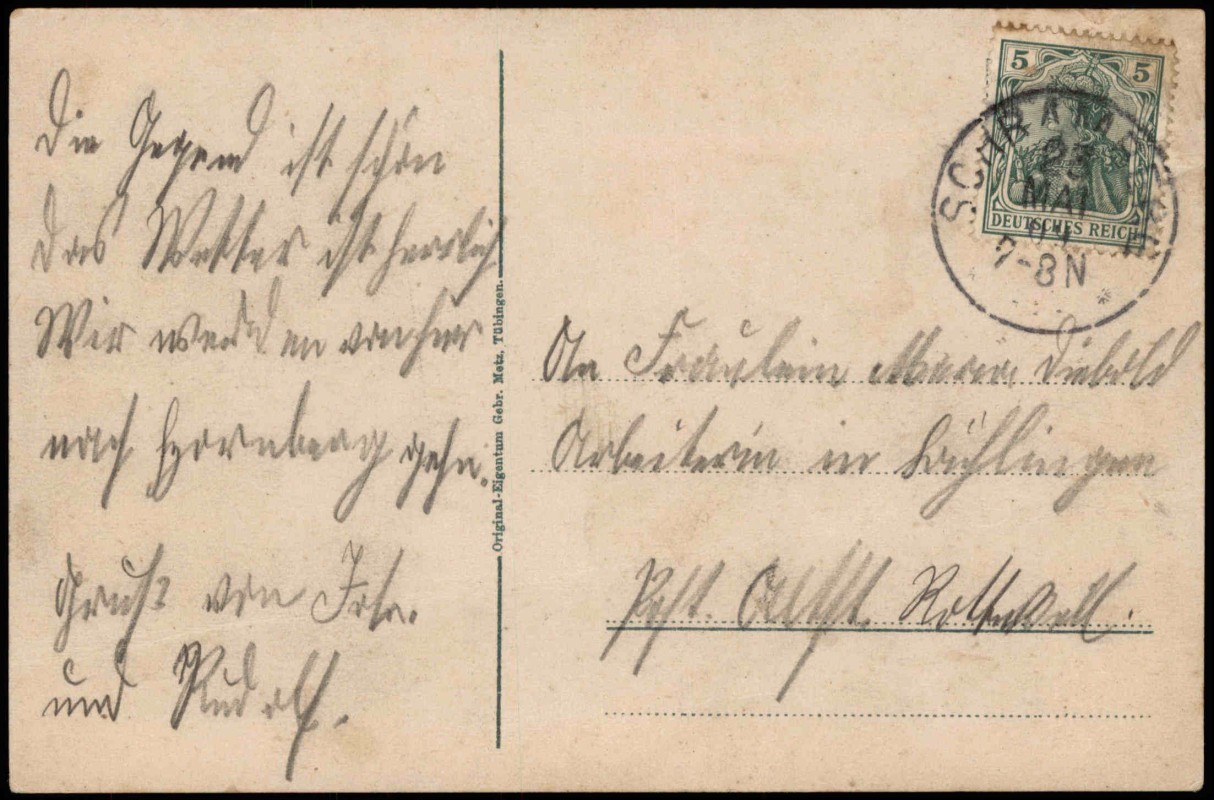 Die Gegend ist schön
das Wetter ist herrlich
Wir werden von hier
nach Hornberg gehn.
Gruß von
und Rudolf.
Original-Eigentum Gebr. Metz, Tübingen.
5 5
DEUTSCHES REICH
SCHRAMBERG
23
MAI
7-8N
An Fräulein Maria Diebold
Arbeiterin in
Post. Altst. Rottweil.